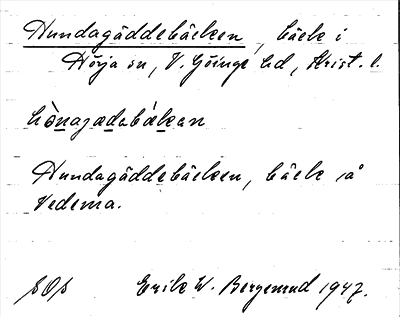 Hundagäddebäcken, bäck i
Hörja sn, V. Göinge hd, Krist. l.
Hundagäddebäcken, bäck på
Vedema.
SOS Erik W. Bergemud 1947.